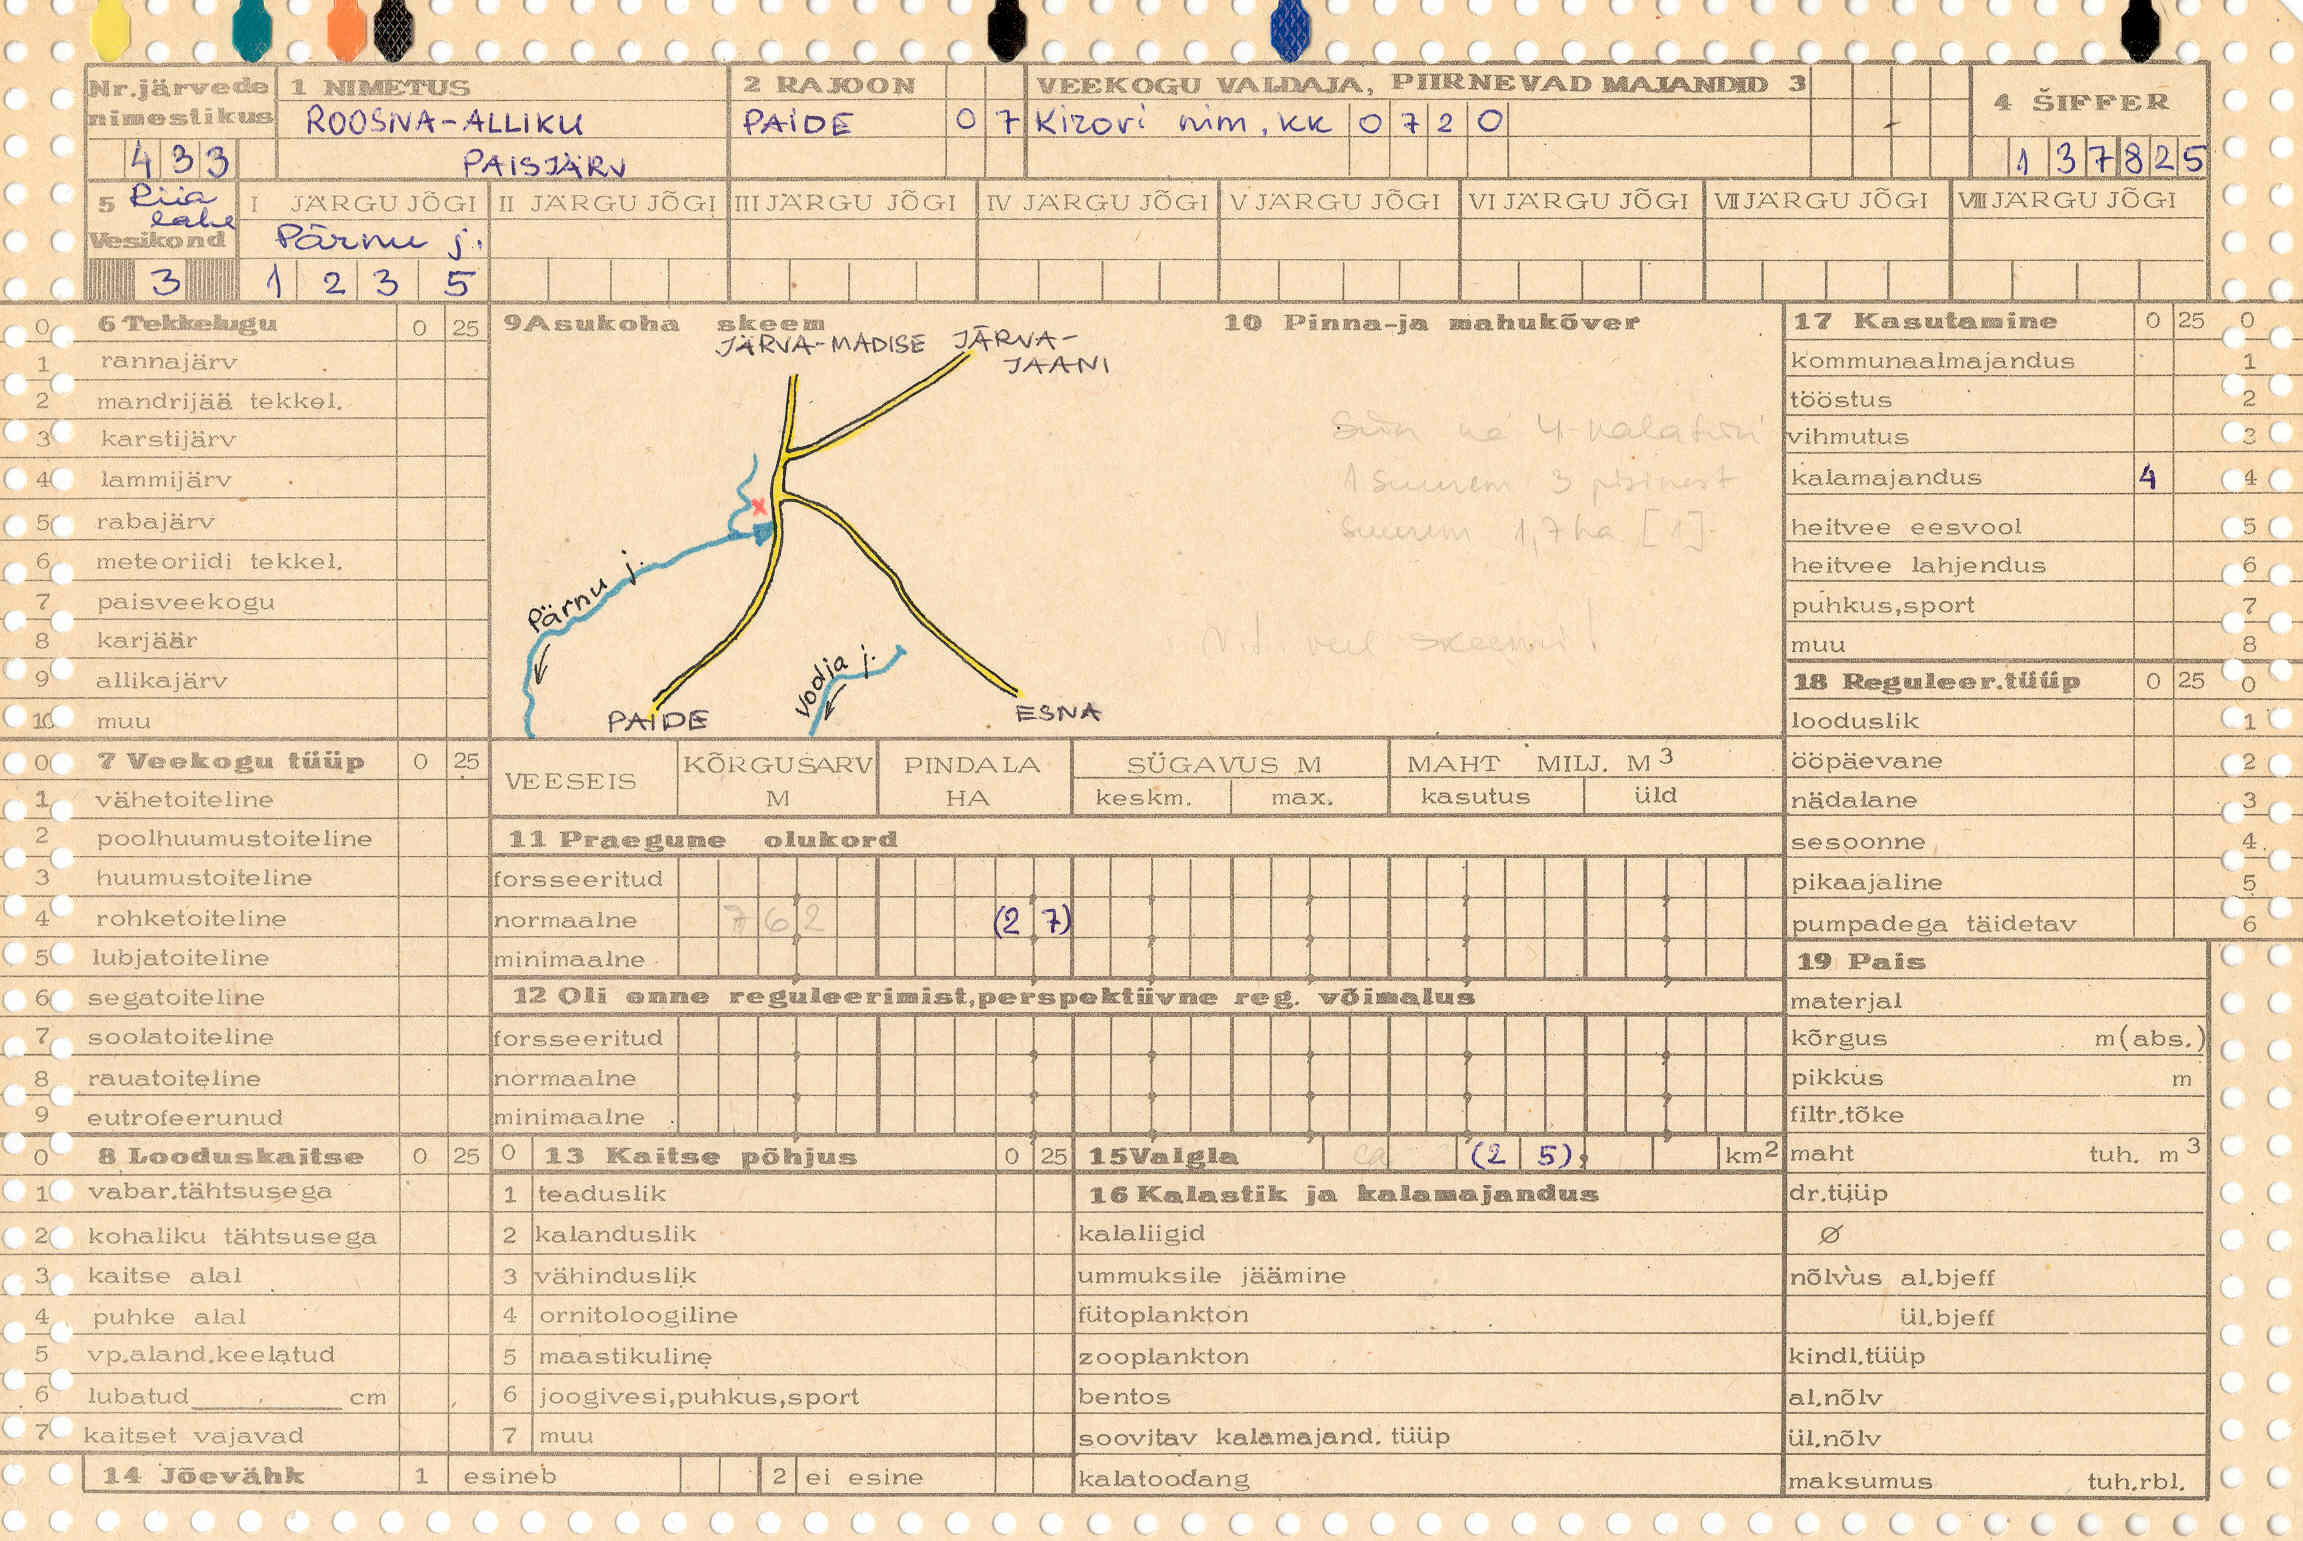 Nr.järvede nimestikus 433
1 NIMETUS ROOSNA-ALLIKU PAISJÄRV
2 RAJOON PAIDE 07
VEEKOGU VALDAJA, PIIRNEVAD MAJANDID 3
Kirovi nim. kk 0720
4 ŠIFFER
137825
5 Riia lahe Vesikond 3
I JÄRGU JÕGI Pärnu j. 1235
II JÄRGU JÕGI
III JÄRGU JÕGI
IV JÄRGU JÕGI
V JÄRGU JÕGI
VI JÄRGU JÕGI
VII JÄRGU JÕGI
VIII JÄRGU JÕGI
0 6 Tekkelugu 0 25
1 rannajärv
2 mandrijää tekkel.
3 karstijärv
4 lammijärv
5 rabajärv
6 meteoriidi tekkel.
7 paisveekogu
8 karjäär
9 allikajärv
10 muu
0 7 Veekogu tüüp 0 25
1 vähetoiteline
2 poolhuumustoiteline
3 huumustoiteline
4 rohketoiteline
5 lubjatoiteline
6 segatoiteline
7 soolatoiteline
8 rauatoiteline
9 eutrofeerunud
0 8 Looduskaitse 0 25
1 vabar.tähtsusega
2 kohaliku tähtsusega
3 kaitse alal
4 puhke alal
5 vp.aland.keelatud
6 lubatud cm
7 kaitset vajavad
14 Jõevähk 1 esineb 2 ei esine
9 Asukoha skeem
JÄRVA-MADISE
JÄRVA-
JAANI
Pärnu j.
Vodja j.
PAIDE
ESNA
10 Pinna-ja mahukõver
1 suurem 3
suurem 1,7 ha [1]
veel skeemi!
VEESEIS
KÕRGUSARV M
PINDALA HA
SÜGAVUS M
keskm. max.
MAHT MILJ. M3
kasutus üld
11 Praegune olukord
forsseeritud
normaalne 762 (27)
minimaalne
12 Oli enne reguleerimist,perspektiivne reg. võimalus
forsseeritud
normaalne
minimaalne
0 13 Kaitse põhjus 0 25
1 teaduslik
2 kalanduslik
3 vähinduslik
4 ornitoloogiline
5 maastikuline
6 joogivesi,puhkus,sport
7 muu
15 Valgla ca (25), km2
16 Kalastik ja kalamajandus
kalaliigid
ummuksile jäämine
fütoplankton
zooplankton
bentos
soovitav kalamajand. tüüp
kalatoodang
17 Kasutamine 0 25 0
kommunaalmajandus 1
tööstus 2
vihmutus 3
kalamajandus 4 4
heitvee eesvool 5
heitvee lahjendus 6
puhkus,sport 7
muu 8
18 Reguleer.tüüp 0 25 0
looduslik 1
ööpäevane 2
nädalane 3
sesoonne 4
pikaajaline 5
pumpadega täidetav 6
19 Pais
materjal
kõrgus m(abs.)
pikkus m
filtr.tõke
maht tuh. m3
dr.tüüp
Ø
nõlvus al.bjeff
ül.bjeff
kindl.tüüp
al.nõlv
ül.nõlv
maksumus tuh.rbl.